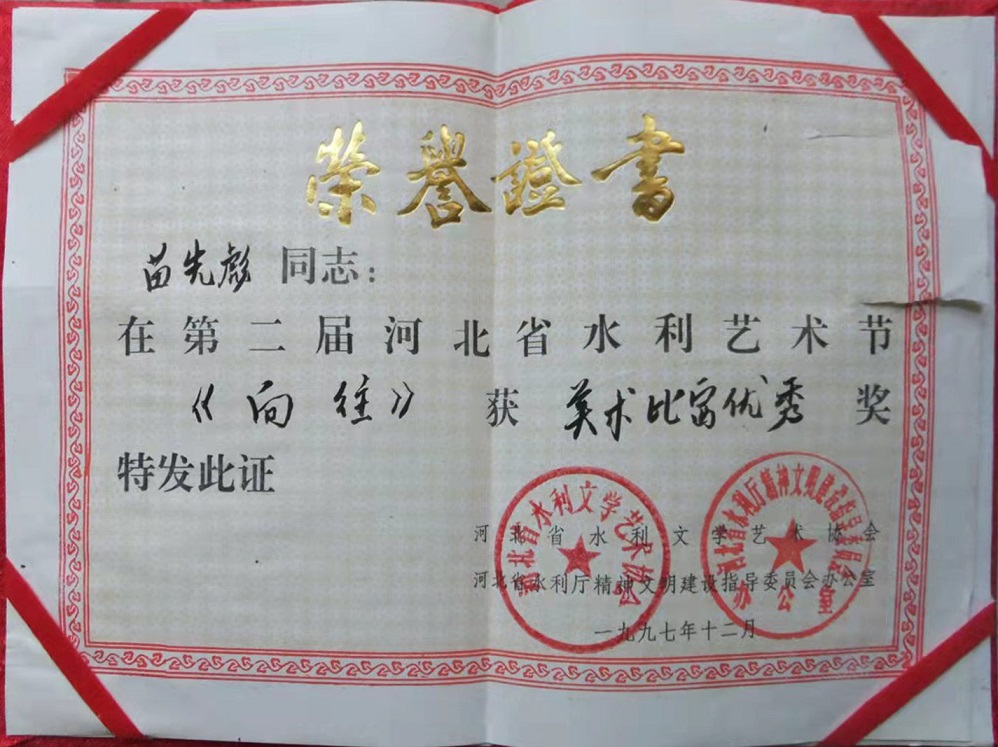 榮譽證書
苗先彪 同志：
在第二届河北省水利艺术节
《向往》 获 美术比赛优秀 奖
特发此证
河北省水利文学艺术协会
河北省水利厅精神文明建设指导委员会办公室
一九九七年十二月
河北省水利文学艺术协会
河北省水利厅精神文明建设指导委员会
办公室